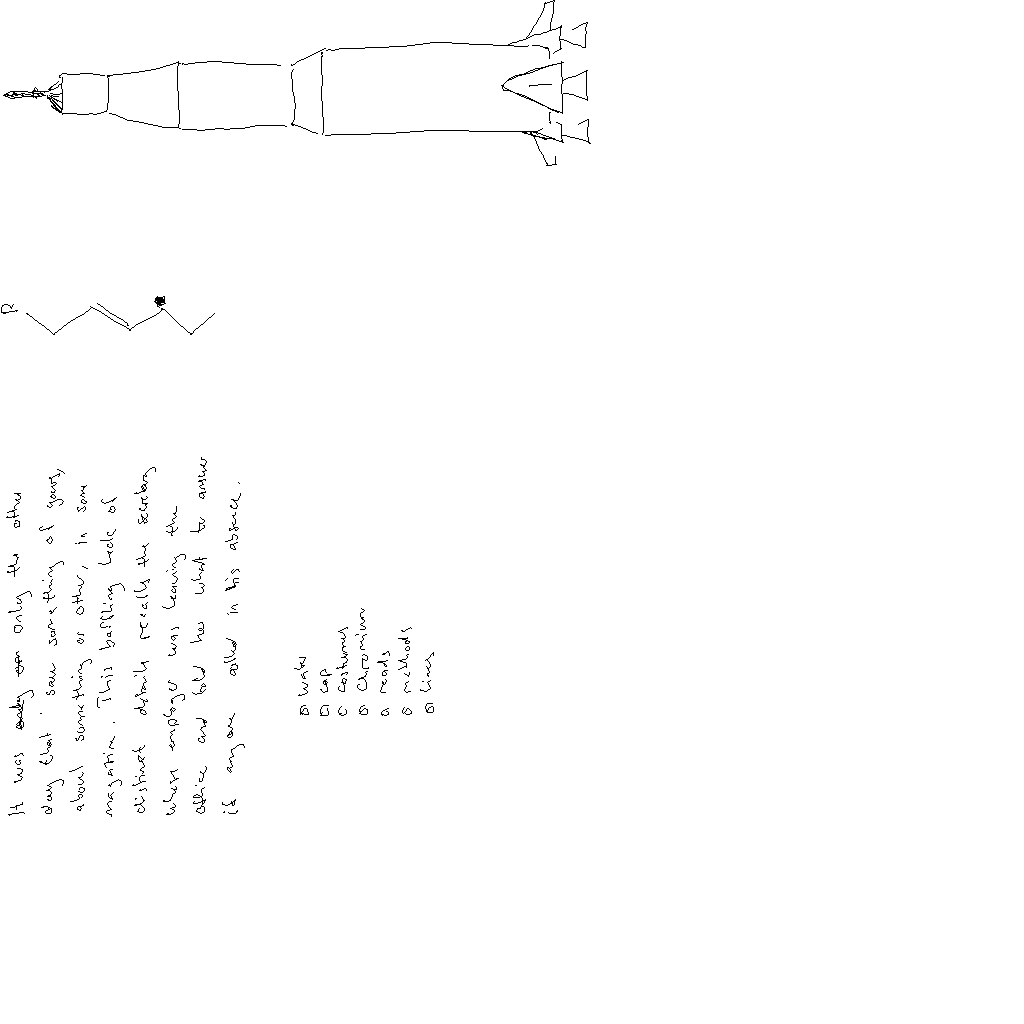 It was only only the other
day that saw something of yours,
about something or other, in some
magazine. This baffling lack of
distinct details recalls the secretary
whose employer was leaving the
office and told her what to answer
if anyone called in his absence.
cap
costumes
Chromium
reads
methods
lines
R